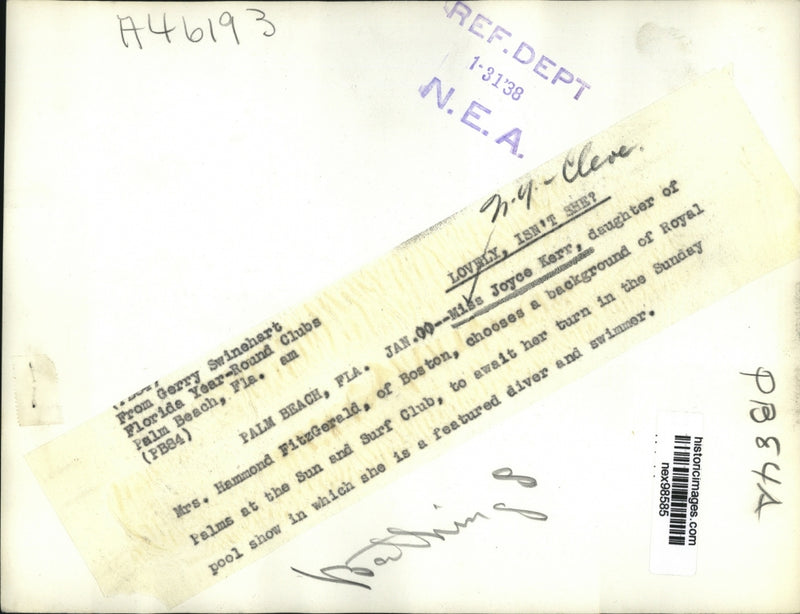 A46193
REF. DEPT
1-31'38
N.E.A.
N.Y. - Cleve.
LOVELY, ISN'T SHE?
From Gerry Swinehart
Florida Year-Round Clubs
Palm Beach, Fla. am
(PB84)
PALM BEACH, FLA. JAN.00--Miss Joyce Kerr, daughter of
Mrs. Hammond FitzGerald, of Boston, chooses a background of Royal
Palms at the Sun and Surf Club, to await her turn in the Sunday
pool show in which she is a featured diver and swimmer.
Bathing
PB84A
historicimages.com
nex98585